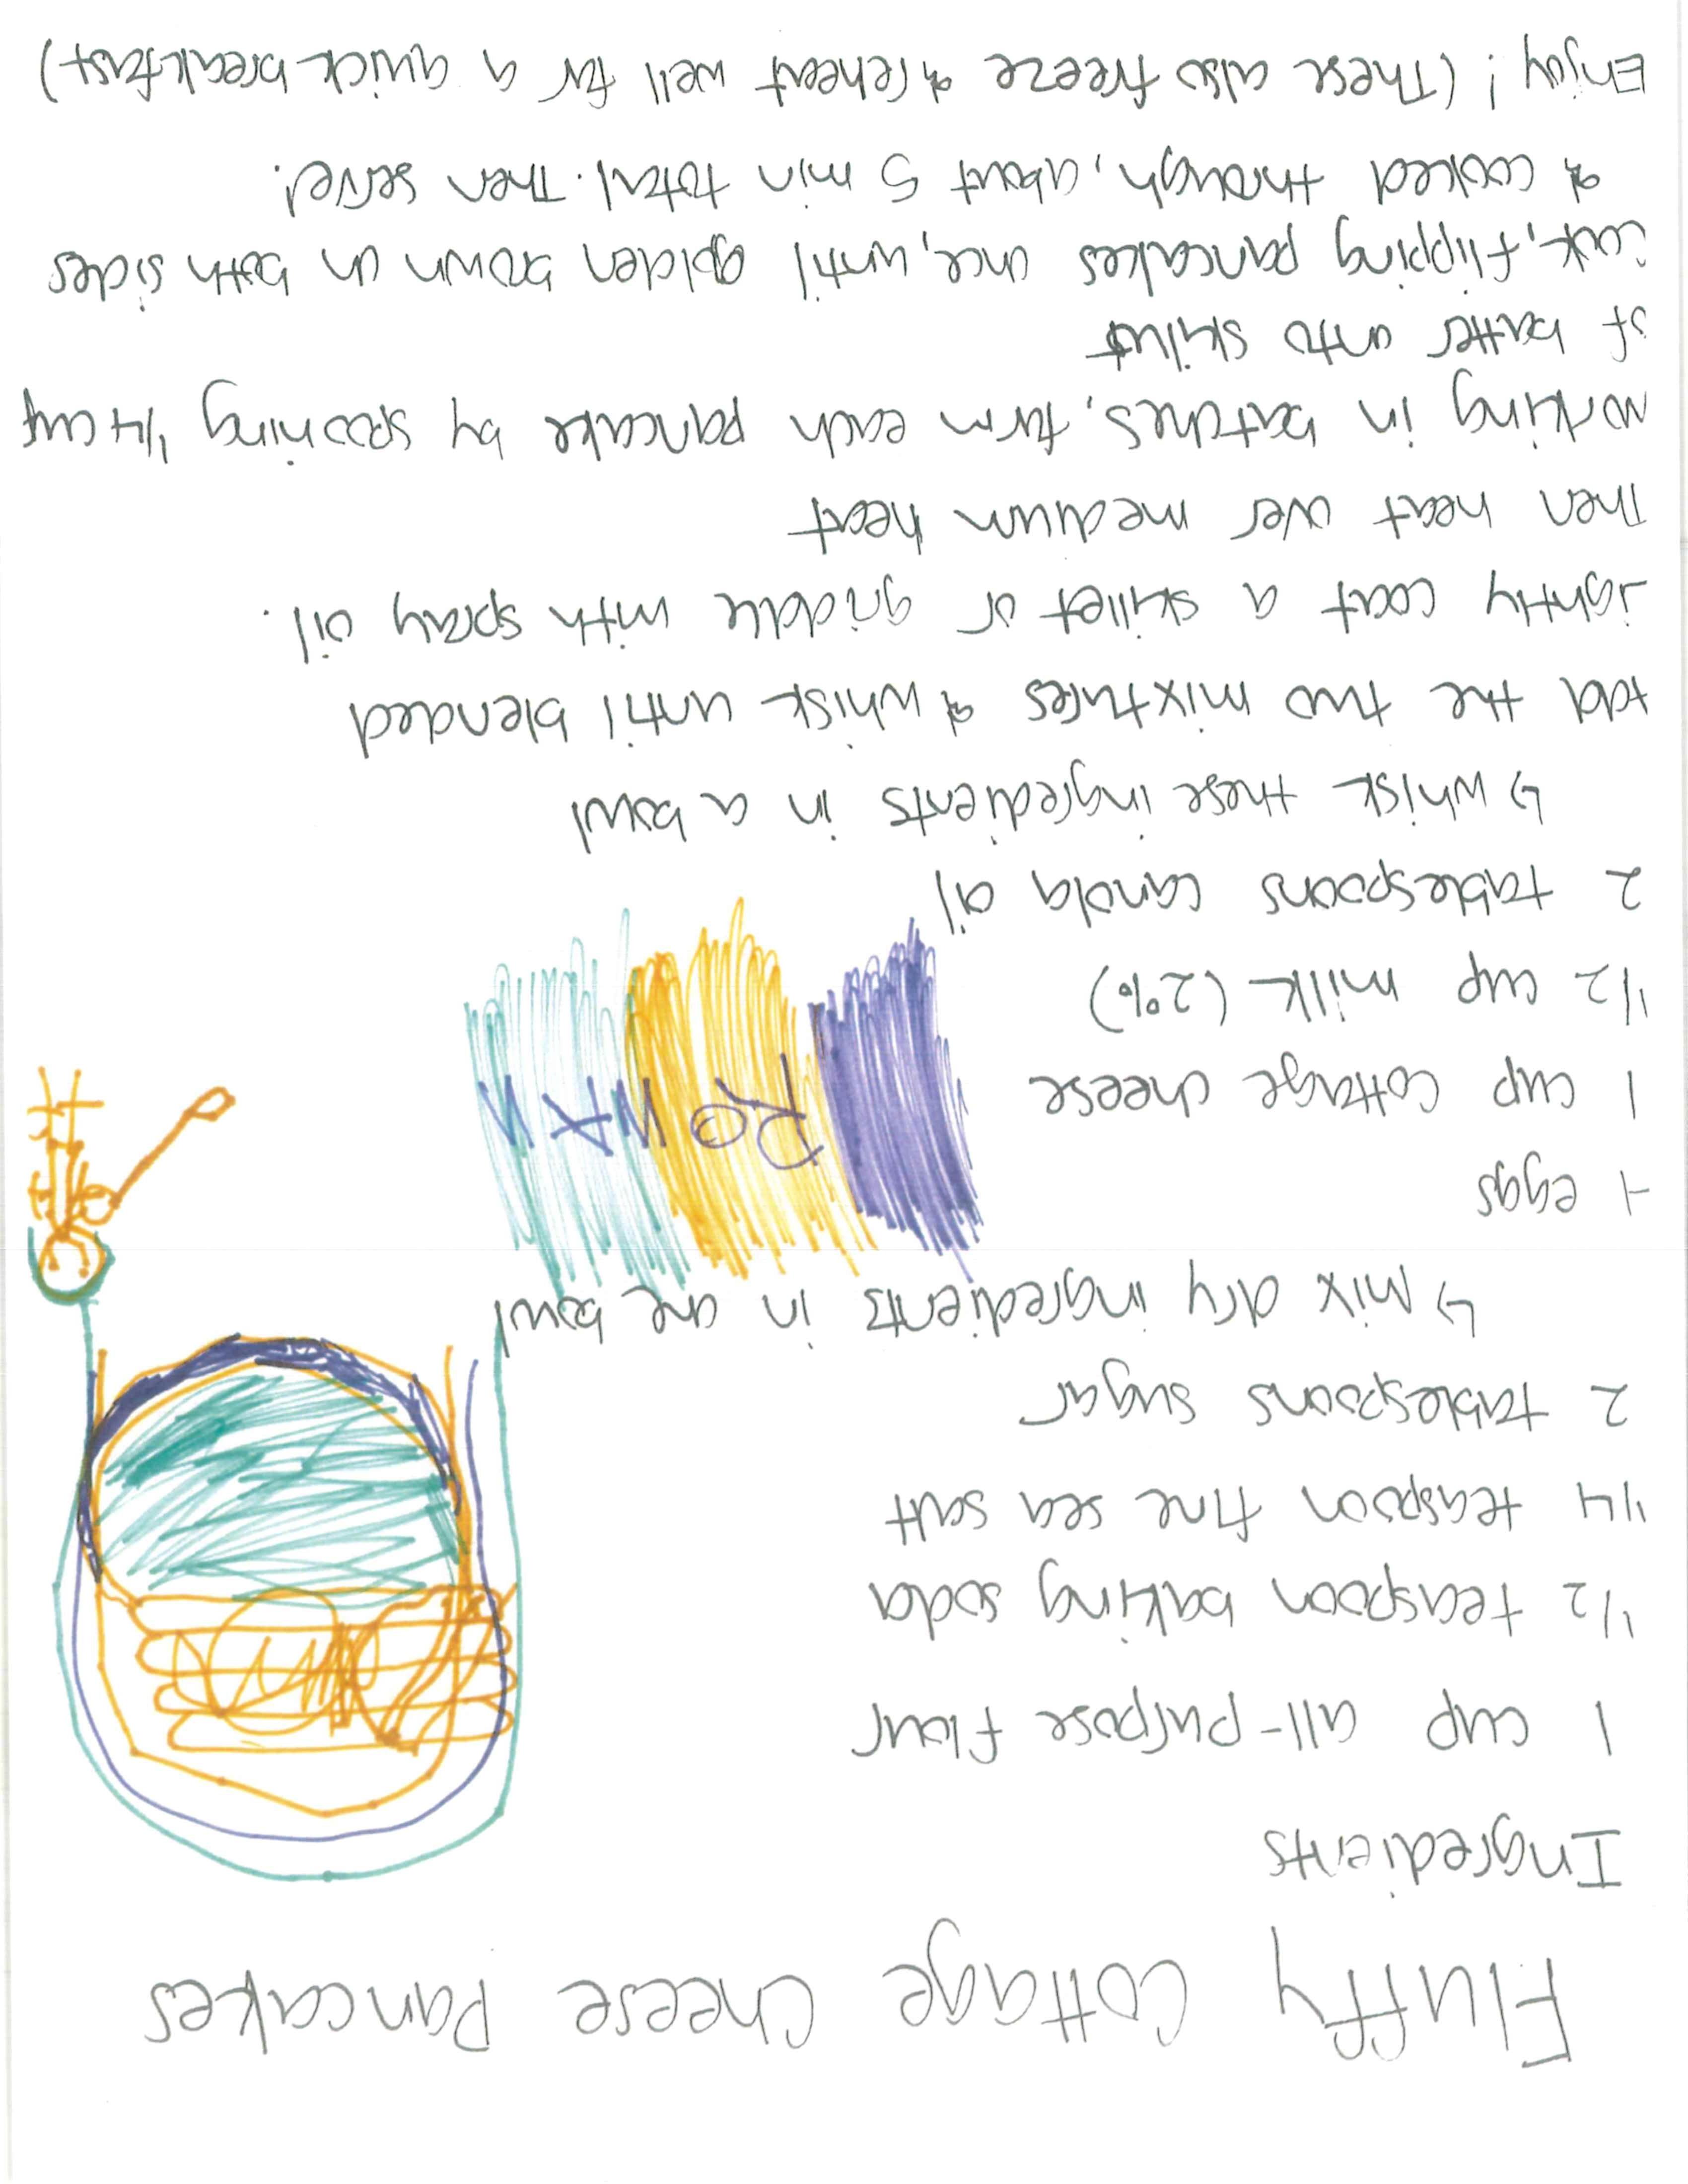 Fluffy Cottage Cheese Pancakes
Ingredients
1 cup all-purpose flour
1/2 teaspoon baking soda
1/4 teaspoon fine sea salt
2 tablespoons sugar
↳ Mix dry ingredients in one bowl
4 eggs
1 cup cottage cheese
ROMAN
1/2 cup milk (2%)
2 tablespoons canola oil
↳ whisk these ingredients in a bowl
Add the two mixtures & whisk until blended
Lightly coat a skillet or griddle with spray oil.
Then heat over medium heat
Working in batches, form each pancake by spooning 1/4 cup
of batter onto skillet
Cook, flipping pancakes once, until golden brown on both sides
& cooked through, about 5 min total. Then served.
Enjoy! (These also freeze & reheat well for a quick breakfast)